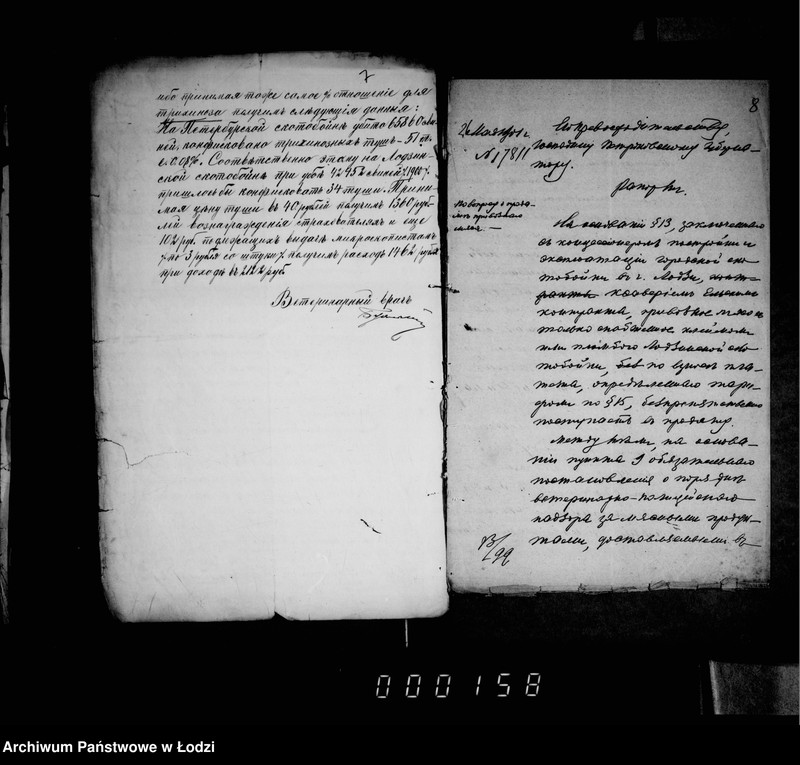 7
ибо принимая тоже самое % отношеніе для
трихиноза получимъ слѣдующія данныя:
На Петербургской скотобойнѣ убито 65860 сви
ней, конфисковано трихинозныхъ тушъ - 51 шт.
Соотвѣтственно этому на Лодзин
ской скотобойнѣ при убоѣ свиней
пришлось бы конфисковать 34 туши. Прини
мая цѣну туши въ 40 рублей получимъ 1360 руб
лей вознагражденія страхователямъ и еще
102 руб. подлежащихъ выдачѣ микроскопистамъ
по 3 рубля со штуки, получимъ расходъ 1462 рубля
при доходѣ въ 2122 руб
Ветеринарный врачъ
8
Мая
№ 17811
Его Превосходительству,
Господину Петроковскому Губерна
тору.
Рапортъ.
По вопросу о
На основаніи § 13, заключеннаго
съ концессіонеромъ постройки и
эксплоатаціи городской ско
тобойни въ г. Лодзи,
контракта, привозное мясо
только снабженное клеймомъ
или пломбою Лодзинской ско
тобойни, безъ по взноса пла
тежа, опредѣленнаго тари
фомъ по § 15, безпрепятственно
поступаетъ въ продажу.
Между тѣмъ, на основа
ніи пункта 9 обязательнаго
постановленія о порядкѣ
ветеринарно-полицейскаго
надзора за мясными продук
тами, доставляемыми въ
13/99
000158
Archiwum Państwowe w Łodzi